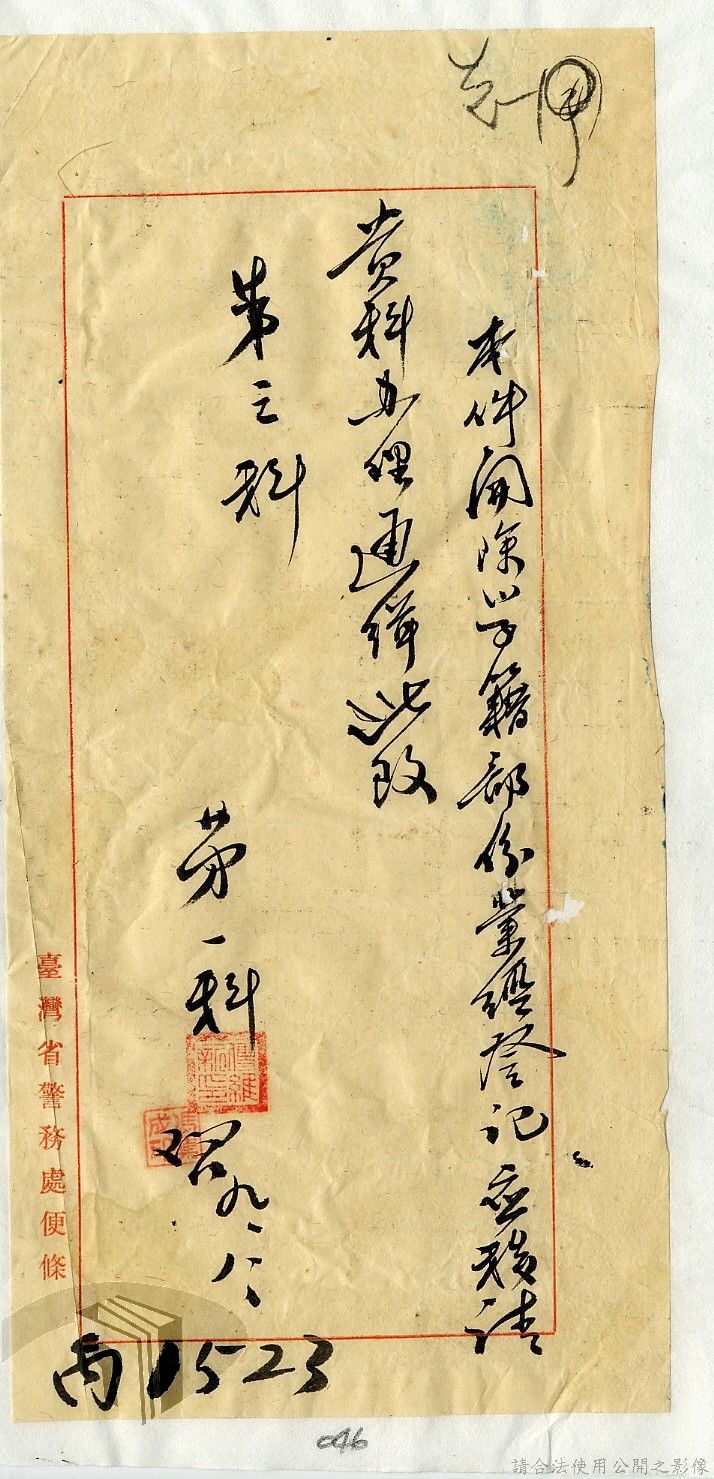 本件開除学籍部份業經登記应移請
貴科办理通緝此致
第三科
第一科
九、八、
臺灣省警務處便條
丙1523
046
請合法使用公開之影像